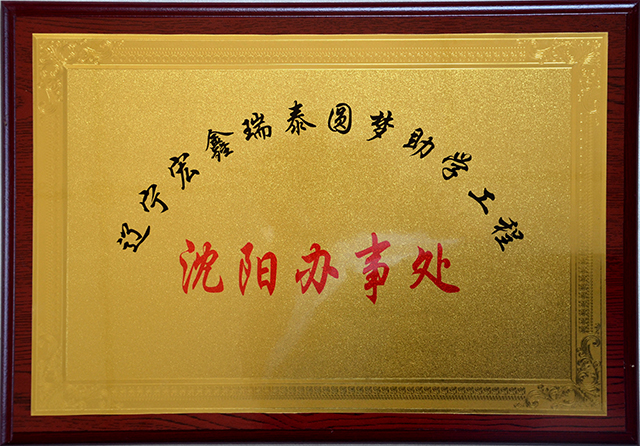 辽宁宏鑫瑞泰圆梦助学工程
沈阳办事处